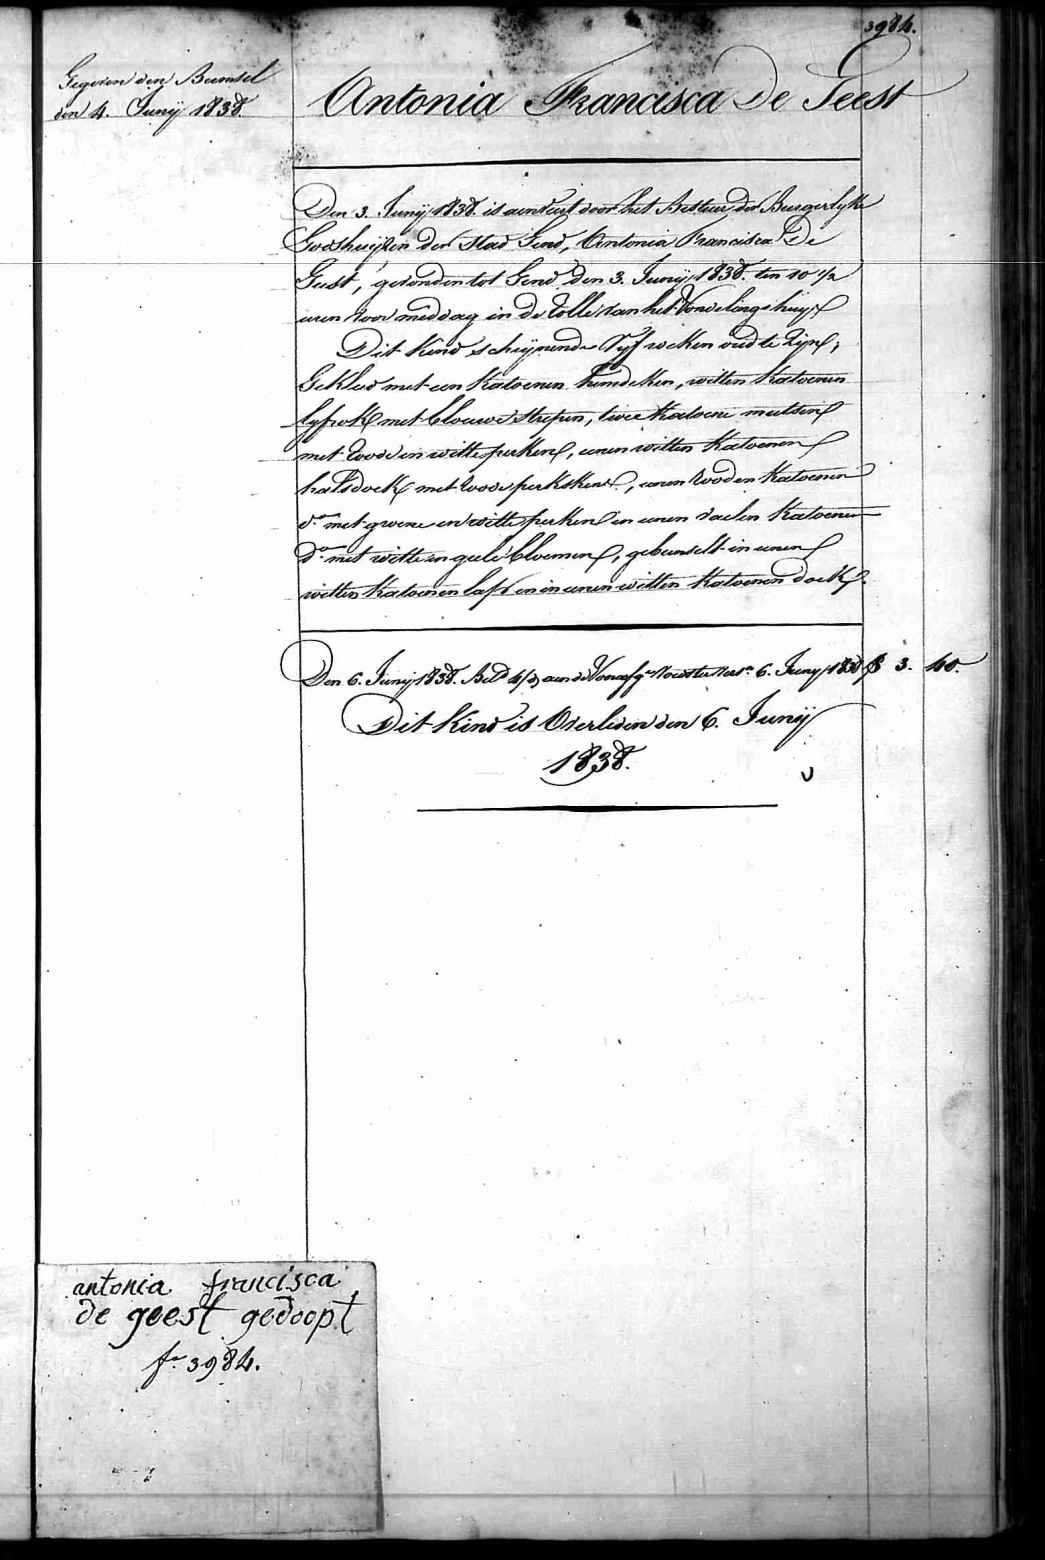 3984.
Gegeven den Bunsel
den 4. Junij 1838.
Antonia Francisca De Geest
Den 3. Junij 1838. is aenveert door het Bestuer der Burgerlyke
Godshuijzen der Stad Gend, Antonia Francisca De
Geest, gevonden tot Gend den 3. Junij 1838. ten 10 1/2
uren voor middag in de Rolle van het Vondelingshuys
Dit Kind schijnende Vyf weken oud te Zijn,
Gekleed met een Katoenen hemdeken, witten Katoenen
lyfrok met blouwe strepen, twee Katoene mutsen
met roode en witte perken, eenen witten Katoenen
halsdoek met roode perkskens, eenen rooden Katoenen
do. met groene en witte perken en eenen vaelen Katoenen
do. met witte en geele bloemen, gebunselt in eenen
witten Katoenen lap en in eenen witten Katoenen doek.
Den 6. Junij 1838. aen de Voester 6. Junij 1838 3. 40.
Dit Kind is Overleden den 6. Junij
1838.
antonia francisca
de geest gedoopt
fo. 3984.